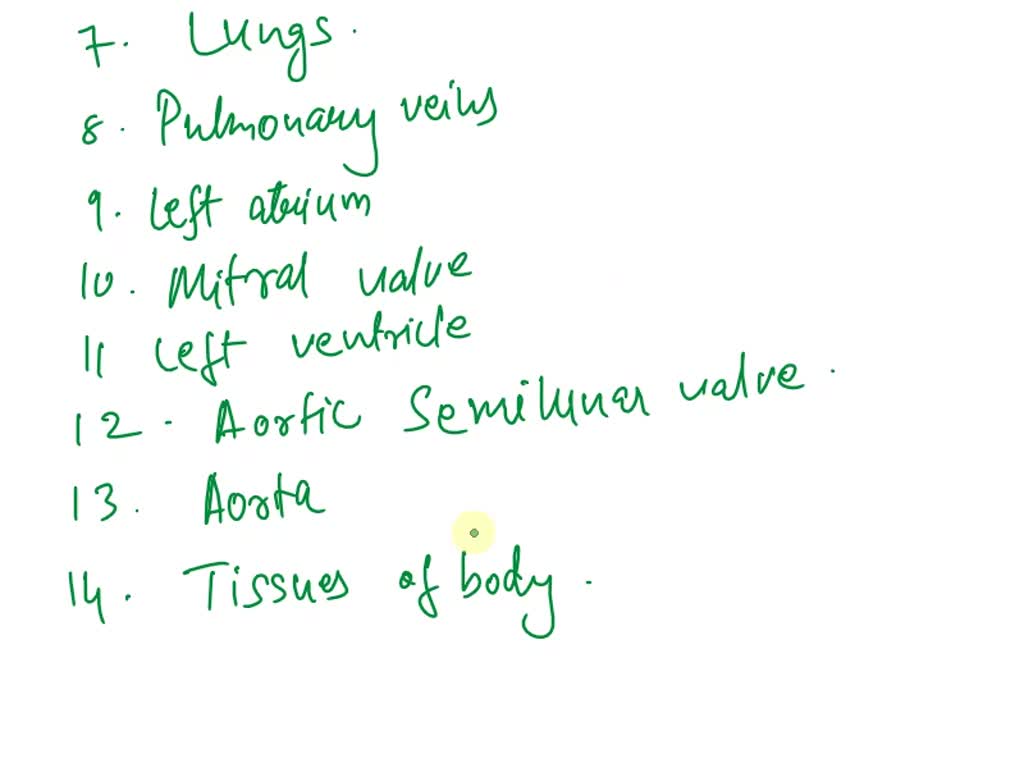 7. Lungs.
8. Pulmonary veins
9. Left atrium
10. Mitral valve
11 Left ventricle
12. Aortic Semilunar valve.
13. Aorta
14. Tissues of body.